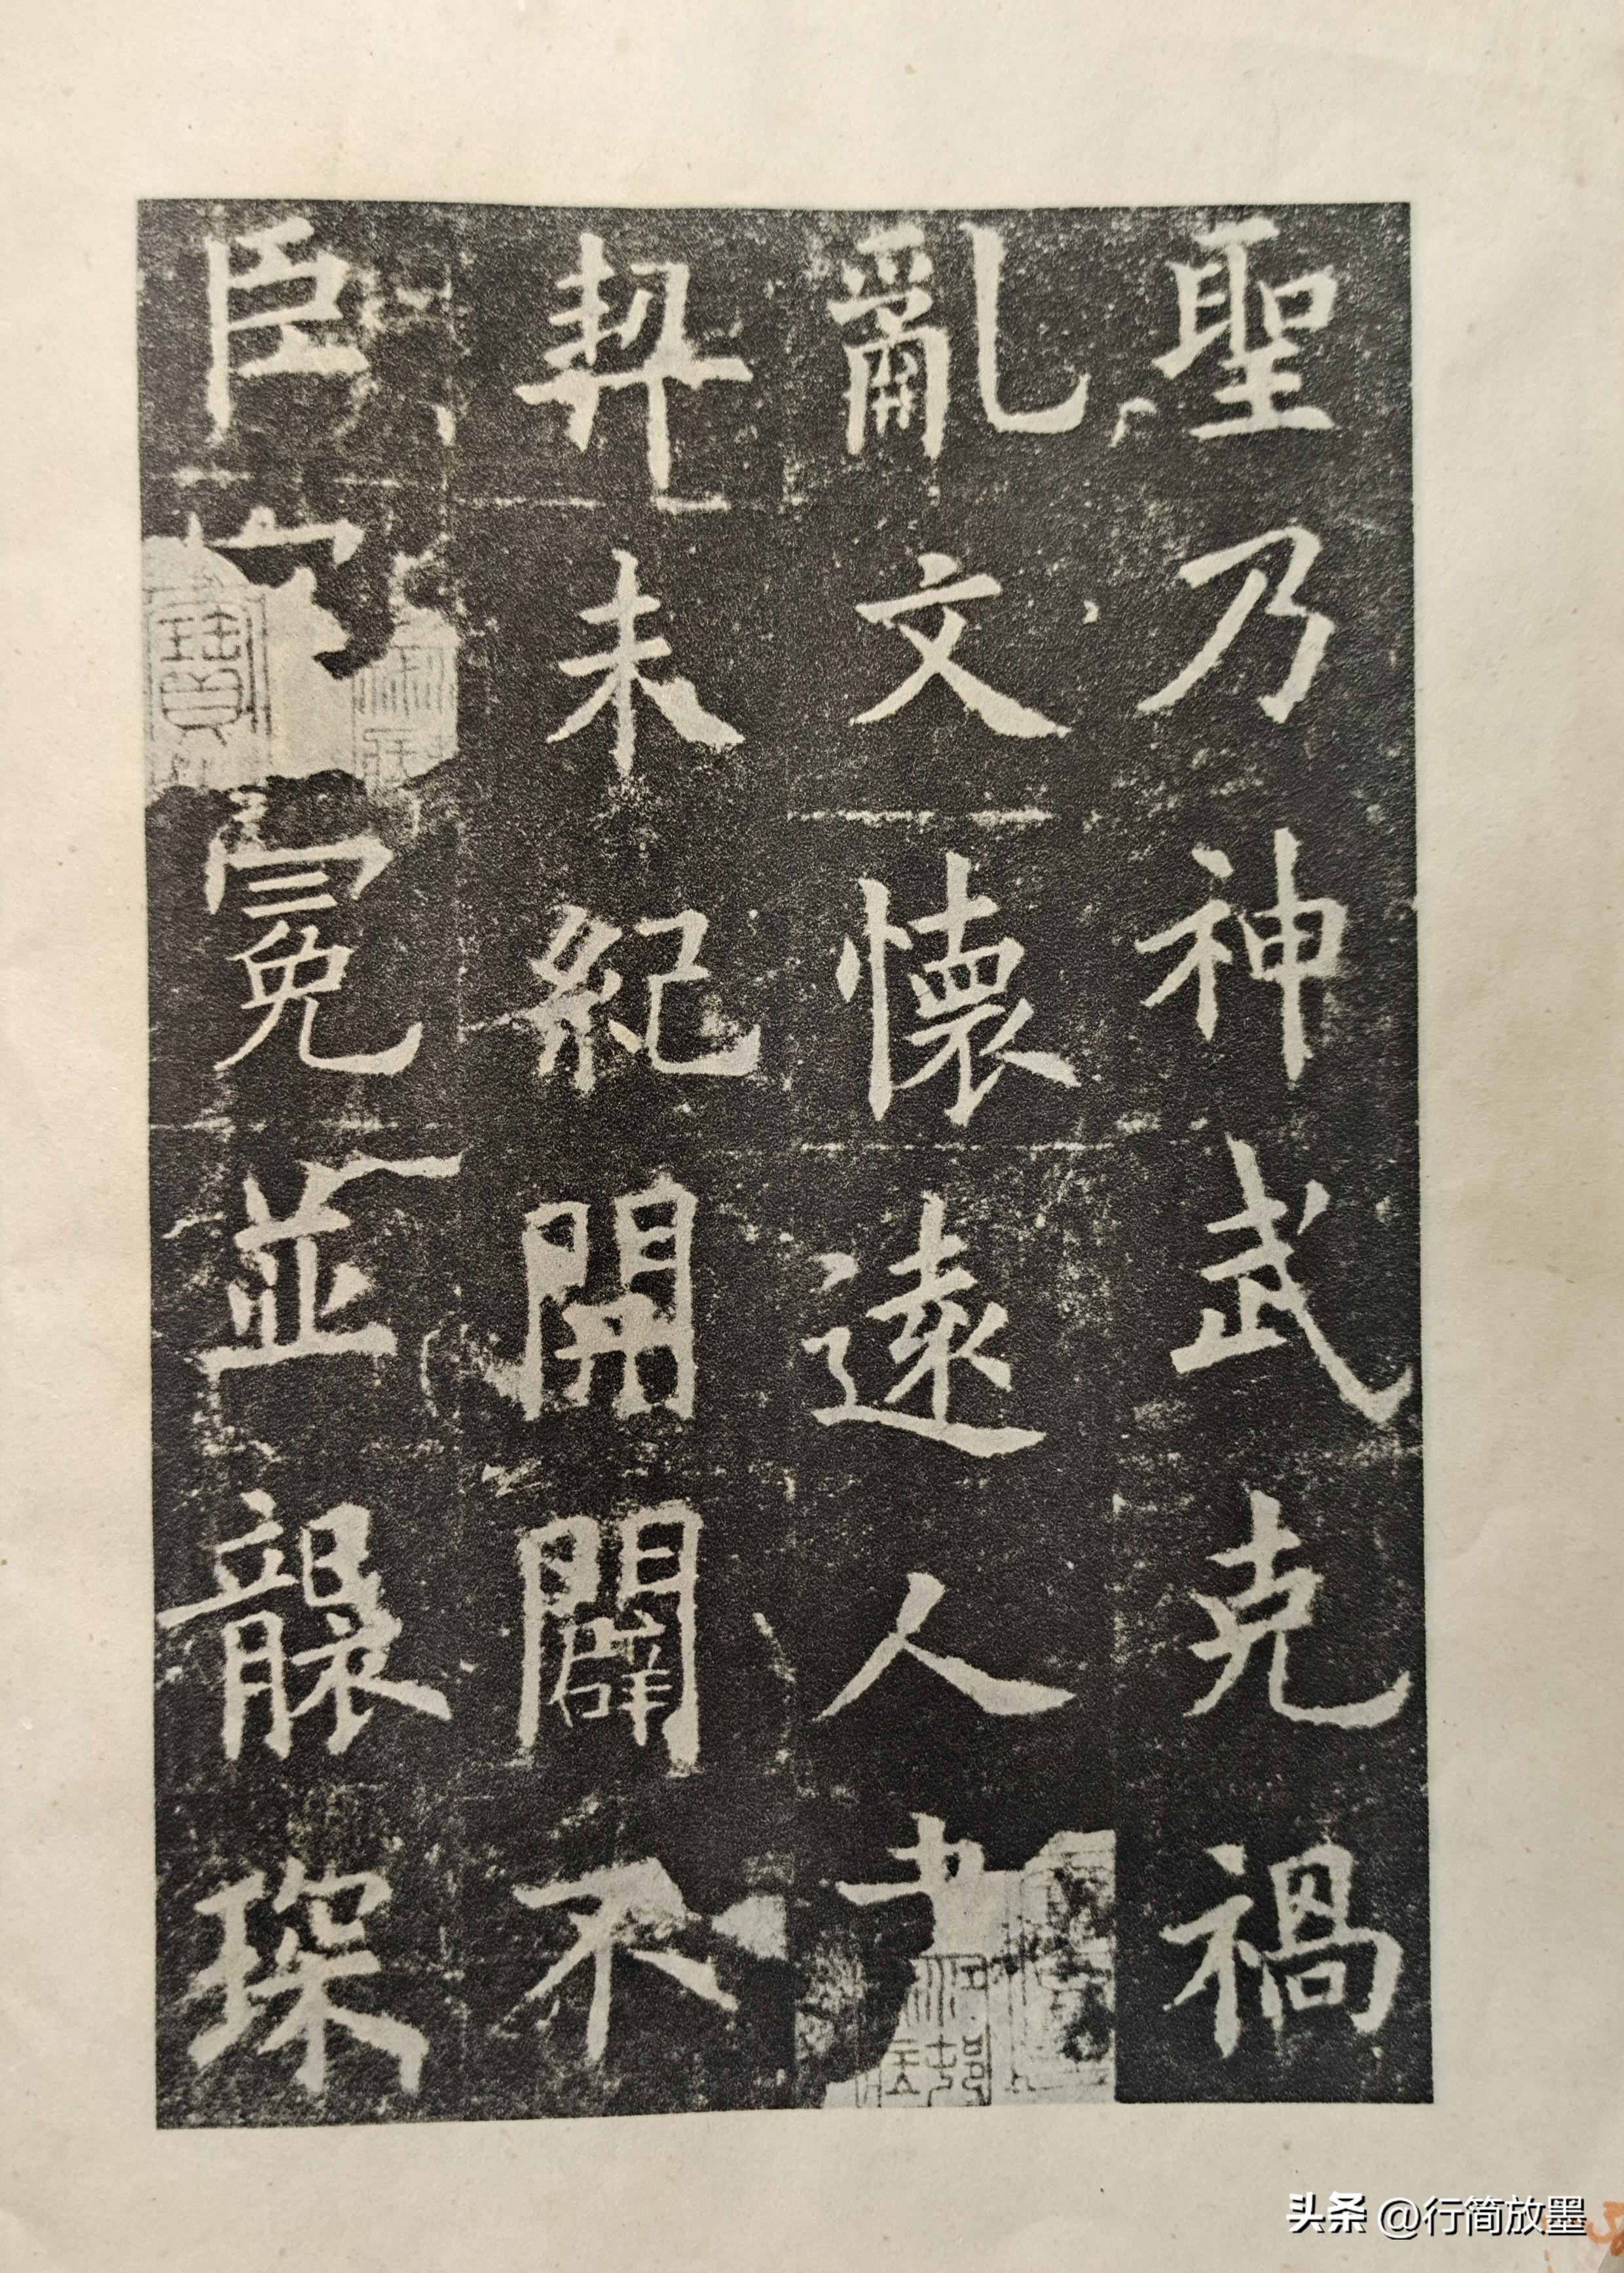 聖乃神武克禍
亂文懷遠人
契未紀開闢不
臣冠冕並襲琛
头条 @行简放墨